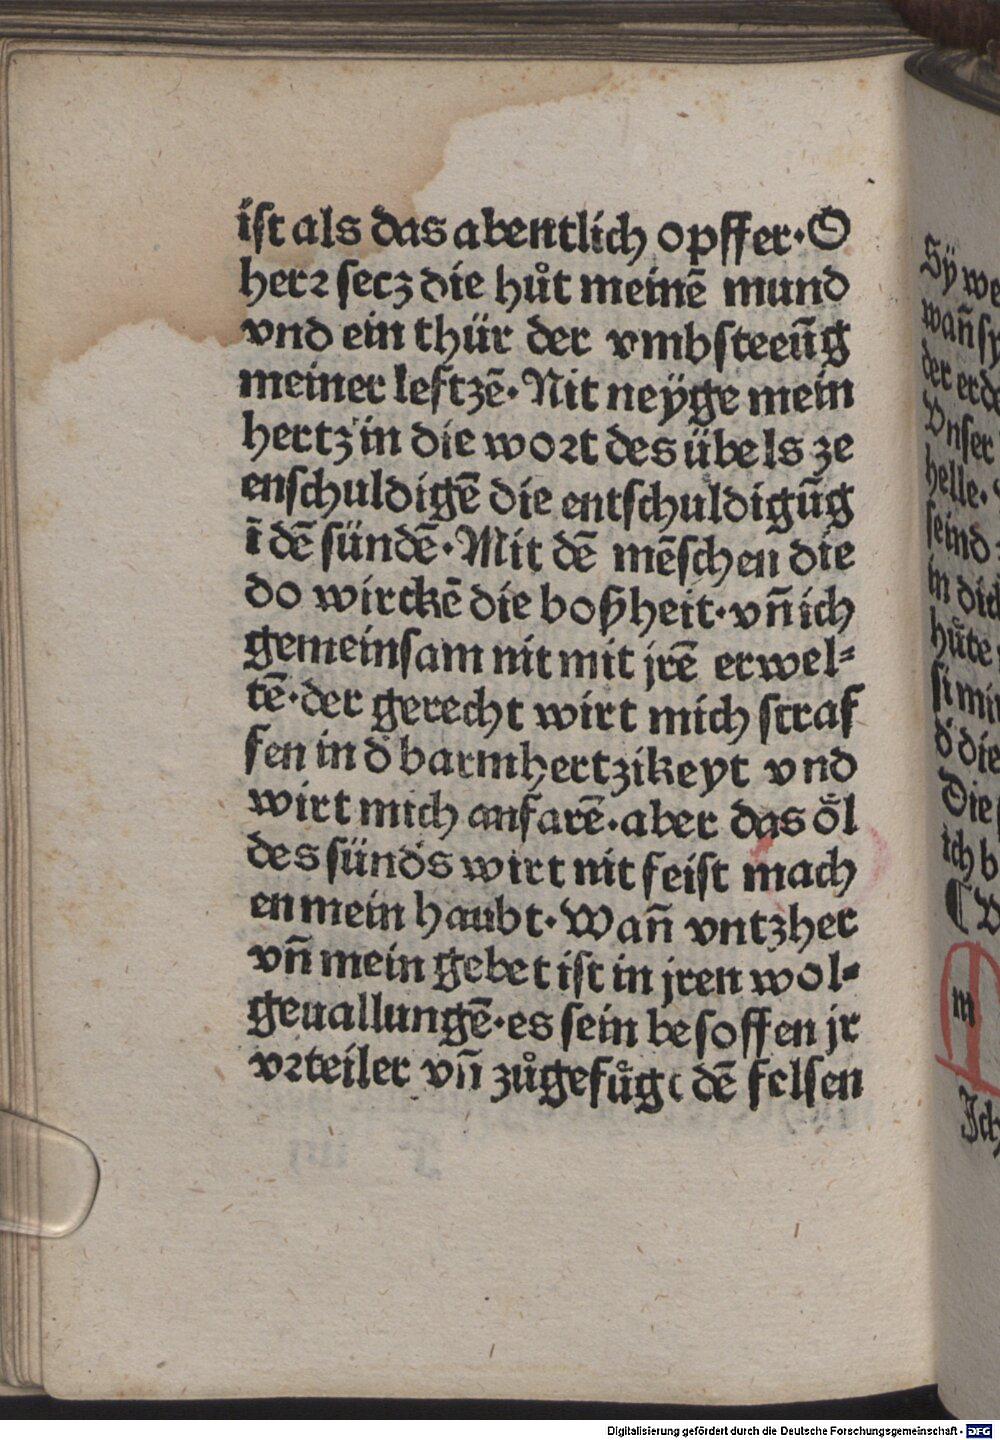 ist als das abentlich opffer· O
herꝛ secz die hůt meinē mund
vnd ein thür der vmbsteeūg
meiner leftzē· Nit neÿge mein
hertz in die woꝛt des übels ze
enschuldigē die entschuldigūg
ī dē sündē· Mit dē mēschen die
do wirckē die boßheit· vn̄ ich
gemeinsam nit mit jrē erwel⸗
tē· der gerecht wirt mich straf
fen in d̕ barmhertzikeyt vnd
wirt mich anfarē· aber das oͤl
des sünd̕s wirt nit feist mach
en mein haubt· Wan̄ vntzher
vn̄ mein gebet ist in jren wol⸗
geuallungē· es sein besoffen jr
vꝛteiler vn̄ zůgefůgt dē felsen
Sÿ we
wan̄ sy
der erd
Vnser
helle·
seind
in dich
hůte
si mir
d̕ die
Die
ich b
¶ V
m
Ich
Digitalisierung gefördert durch die Deutsche Forschungsgemeinschaft - DFG